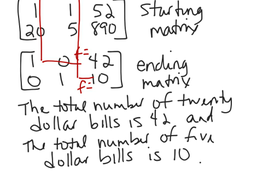 1 1 52 starting
20 5 890 matrix
1 0 f= 42 ending
0 1 f= 10 matrix
The total number of twenty
dollar bills is 42 and
The total number of five
dollar bills is 10.